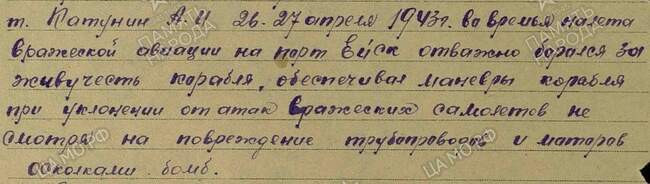 т. Катунин А.И 26-27 апреля 1943г. во времья налета
вражеской авиации на порт Ейск отважно борался за
живучесть корабля, обеспечивал маневры корабля
при уклонении от атак вражеских самолетов не
смотря на повреждение трубопроводов и маторов
осколками бомб.
ПАМЯТЬ НАРОДА
ЦАМО РФ
ПАМЯТЬ НАРОДА
ЦАМО РФ